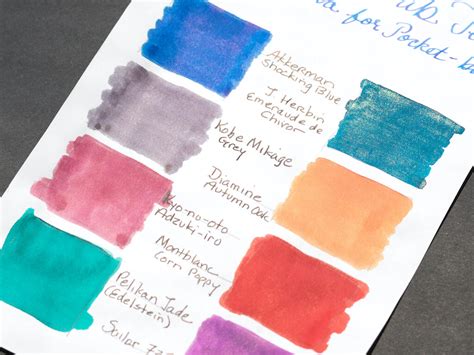 for Pocket-
Akkerman
Shocking Blue
J. Herbin
Emeraude de
Chivor
Kobe Mikage
Grey
Diamine
Autumn Oak
Kyo-no-oto
Adzuki-iro
Montblanc
Corn Poppy
Pelikan Jade
(Edelstein)
Sailor